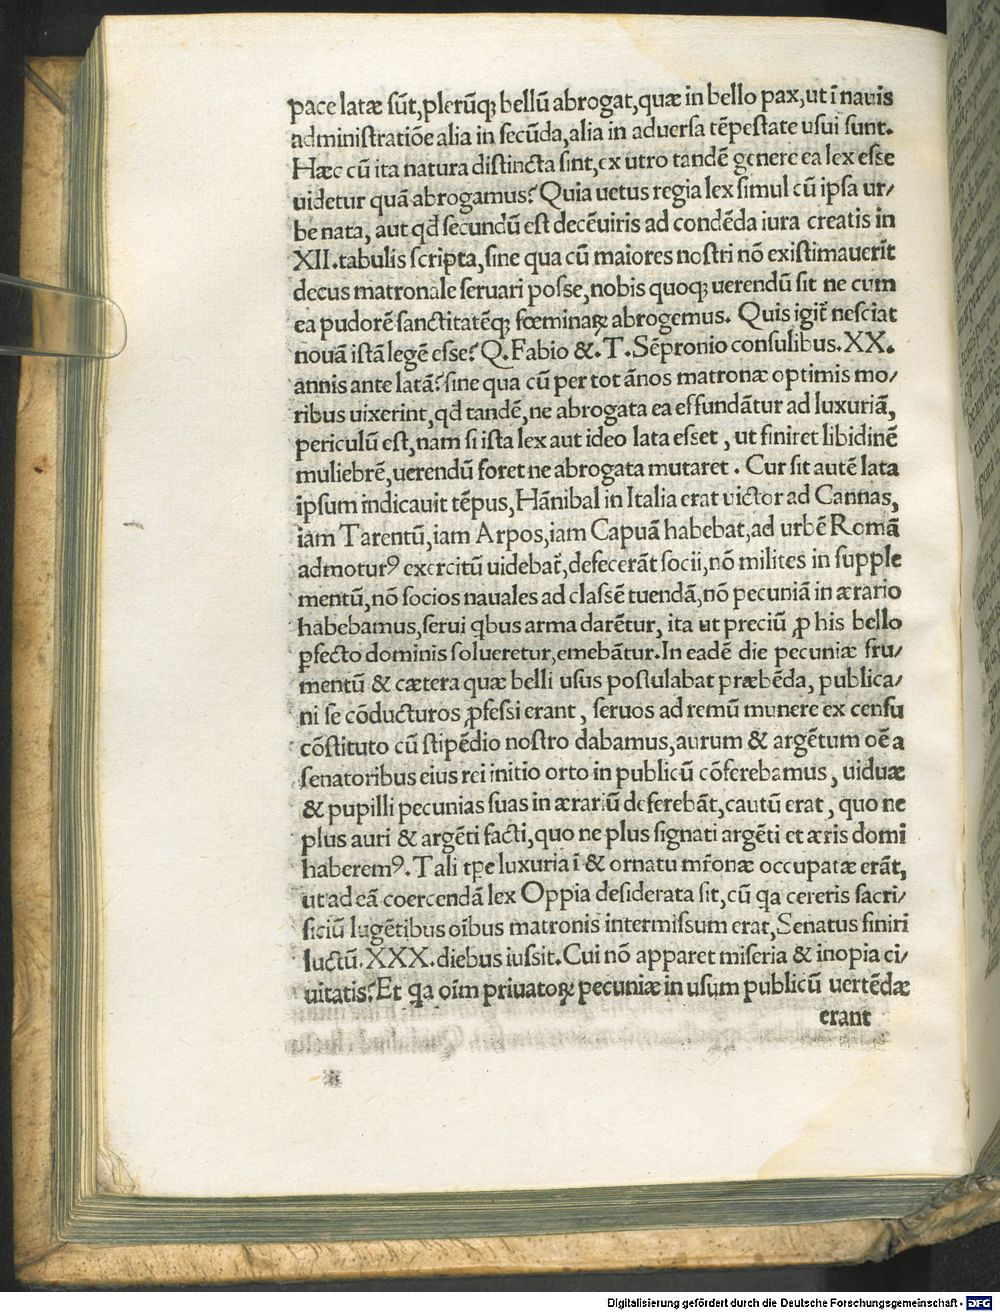 pace latæ sũt, plerũq; bellũ abrogat, quæ in bello pax, ut ĩ nauis
administratiõe alia in secũda, alia in aduersa tẽpestate usui sunt.
Hæc cũ ita natura distincta sint, ex utro tandẽ genere ea lex esse
uidetur quã abrogamus? Quia uetus regia lex simul cũ ipsa ur/
be nata, aut qđ secundũ est decẽuiris ad condẽda iura creatis in
XII. tabulis scripta, sine qua cũ maiores nostri nõ existimauerĩt
decus matronale seruari posse, nobis quoq; uerendũ sit ne cum
ea pudorẽ sanctitatẽq; fœminaꝝ abrogemus. Quis igit̃ nesciat
nouã istã legẽ esse? Q. Fabio &. T. Sẽpronio consulibus. XX.
annis ante latã? sine qua cũ per tot ãnos matronæ optimis mo/
ribus uixerint, qđ tandẽ, ne abrogata ea effundãtur ad luxuriã,
periculũ est, nam si ista lex aut ideo lata esset, ut finiret libidinẽ
muliebrẽ, uerendũ foret ne abrogata mutaret. Cur sit autẽ lata
ipsum indicauit tẽpus, Hãnibal in Italia erat uictor ad Cannas,
iam Tarentũ, iam Arpos, iam Capuã habebat, ad urbẽ Romã
admoturꝰ exercitũ uidebat̃, defecerãt socii, nõ milites in supple
mentũ, nõ socios nauales ad classẽ tuendã, nõ pecuniã in ærario
habebamus, serui q̃bus arma darẽtur, ita ut preciũ ꝓ his bello
ꝑfecto dominis solueretur, emebãtur. In eadẽ die pecuniæ fru/
mentũ & cætera quæ belli usus postulabat præbẽda, publica/
ni se cõducturos ꝓfessi erant, seruos ad remũ munere ex censu
cõstituto cũ stipẽdio nostro dabamus, aurum & argẽtum oẽ a
senatoribus eius rei initio orto in publicũ cõferebamus, uiduæ
& pupilli pecunias suas in ærariũ deferebãt, cautũ erat, quo ne
plus auri & argẽti facti, quo ne plus signati argẽti et æris domi
haberemꝰ. Tali tp̃e luxuria ĩ & ornatu mr̃onæ occupatæ erãt,
ut ad eã coercendã lex Oppia desiderata sit, cũ q̃a cereris sacri/
ficiũ lugẽtibus oĩbus matronis intermissum erat, Senatus finiri
luctũ. XXX. diebus iussit. Cui nõ apparet miseria & inopia ci/
uitatis? Et q̃a oĩm priuatoꝝ pecuniæ in usum publicũ uertẽdæ
erant
Digitalisierung gefördert durch die Deutsche Forschungsgemeinschaft - DFG